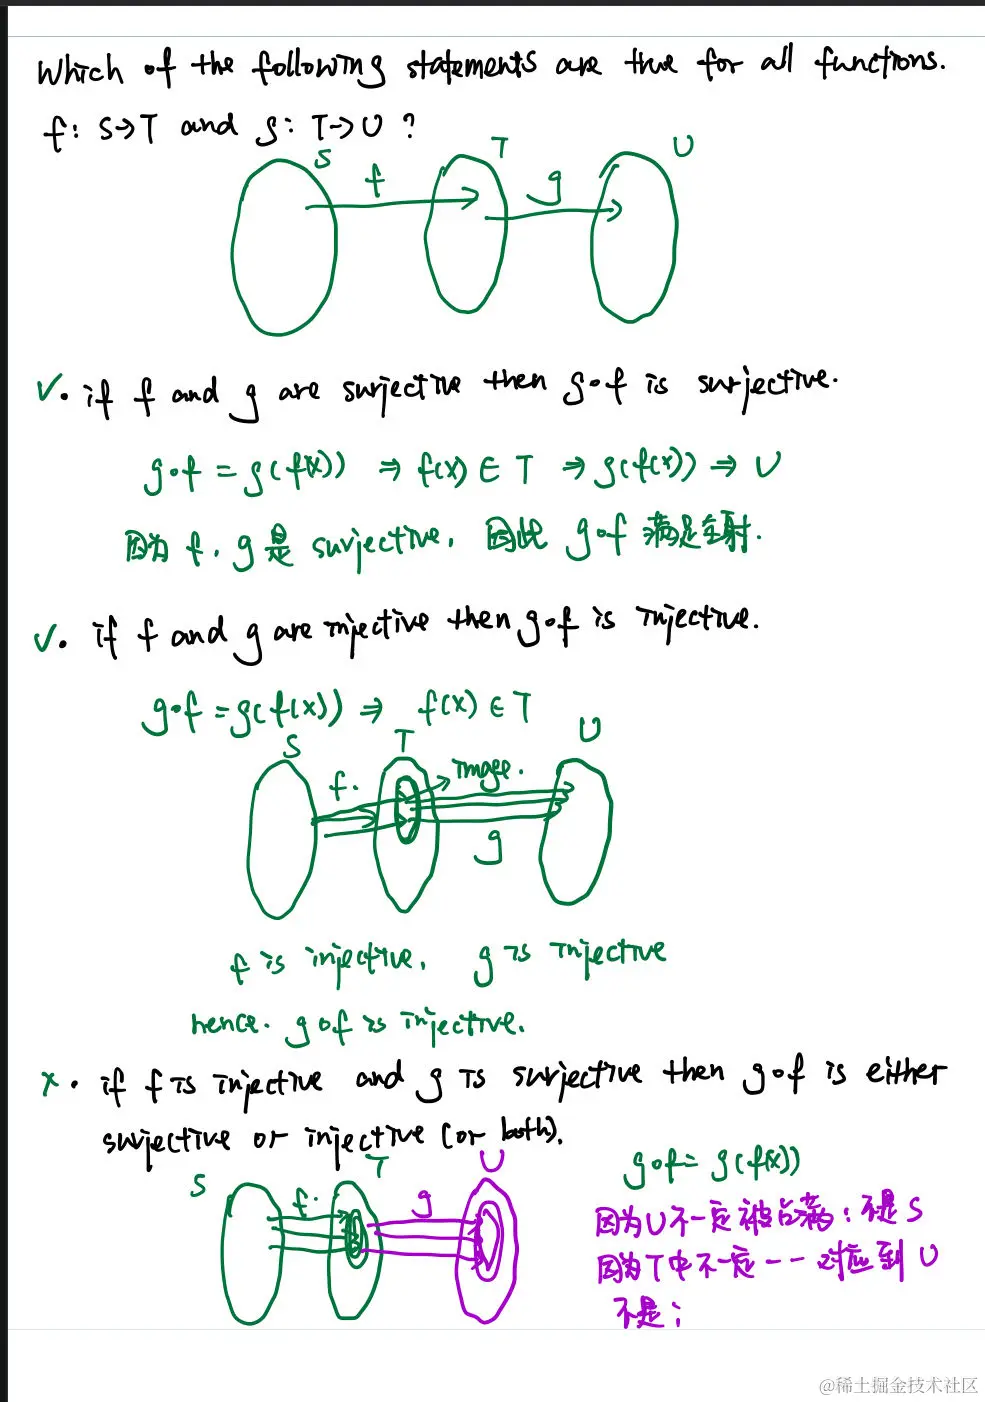 Which of the following statements are true for all functions.
f: S→T and g: T→U ?
S T U
f g
✓. if f and g are surjective then g∘f is surjective.
g∘f = g(f(x)) ⇒ f(x) ∈ T ⇒ g(f(x)) ⇒ U
因为 f, g 是 surjective, 因此 g∘f 满足全射.
✓. if f and g are injective then g∘f is injective.
g∘f = g(f(x)) ⇒ f(x) ∈ T
S T U
f. image.
g
f is injective, g is injective
hence. g∘f is injective.
x. if f is injective and g is surjective then g∘f is either
surjective or injective (or both).
S T U
f. g
g∘f = g(f(x))
因为U不一定被占满: 不是 S
因为T中不一定一一对应到 U
不是 i
@稀土掘金技术社区